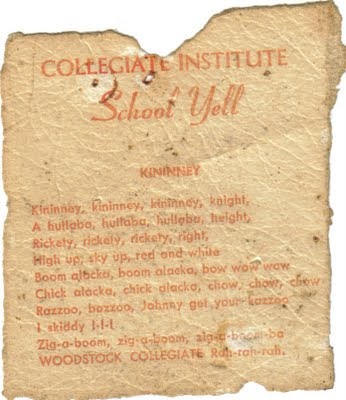 COLLEGIATE INSTITUTE
School Yell
KININNEY
Kininney, kininney, kininney, knight,
A hullaba, hullaba, hullaba, height,
Rickety, rickety, rickety, right,
High up, sky up, red and white
Boom alacka, boom alacka, bow wow waw
Chick alacka, chick alacka, chow, chow, chow
Razzoo, bazzoo, Johnny get your kazzoo
I skiddy I-I-I
Zig-a-boom, zig-a-boom, zig-a-boom-ba
WOODSTOCK COLLEGIATE Rah-rah-rah.